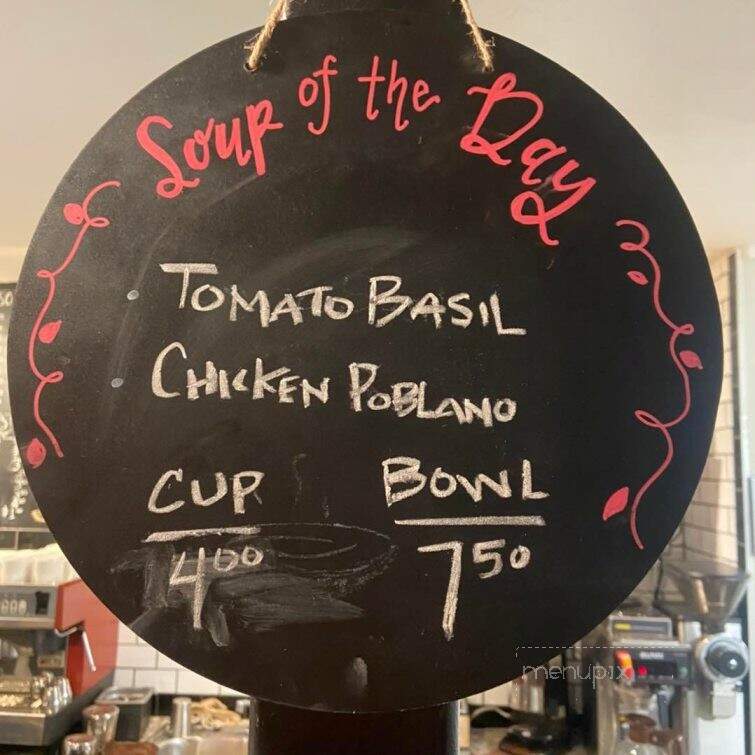 Soup of the Day
• TOMATO BASIL
• CHICKEN POBLANO
CUP BOWL
4.00 7.50
menupix